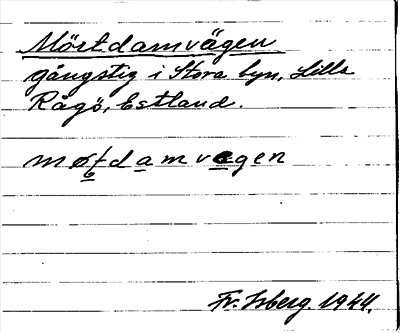 Mörtdamvägen
gångstig i Stora byn, Lilla
Rågö, Estland.
damvegen
Fr. Isberg 1944.